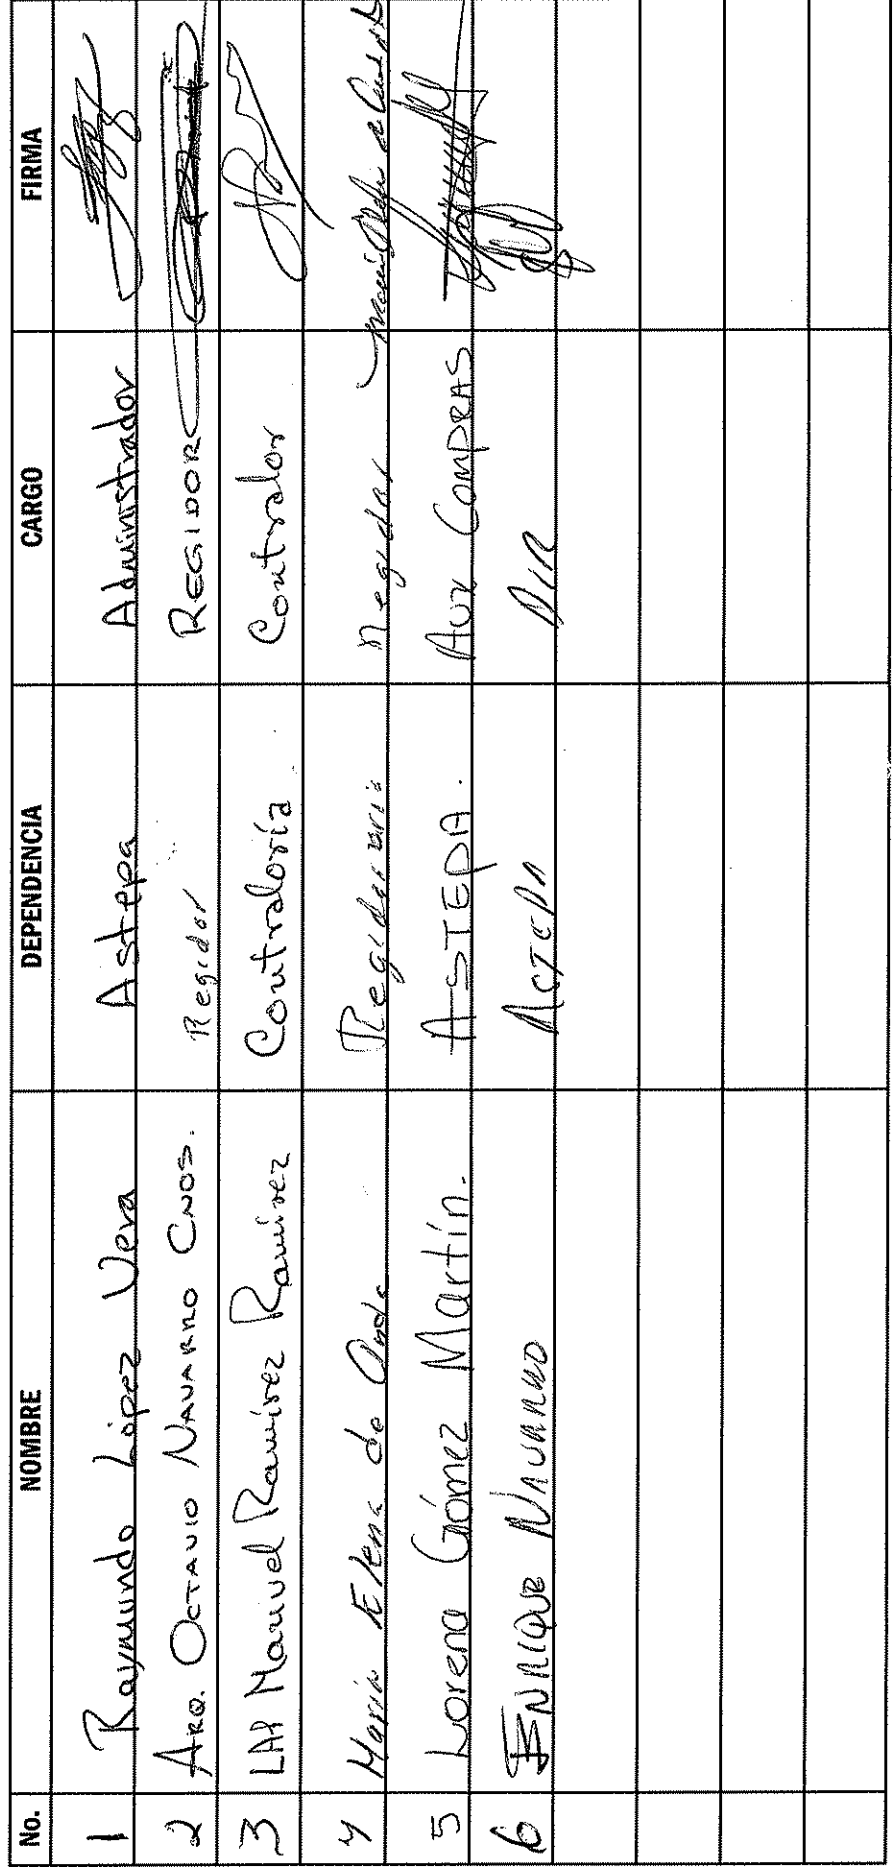 No. NOMBRE DEPENDENCIA CARGO FIRMA
1 Raymundo López Vera Astepa Administrador
2 ARQ. OCTAVIO NAVARRO CNOS. Regidor REGIDOR
3 LAP Marivel Ramírez Ramírez Contraloría Contralor
4 María Elena de Anda Regiduria regidor
5 Lorena Gómez Martín. ASTEPA. Aux COMPRAS
6 ENRIQUE NAVARRO ASTEPA DIR